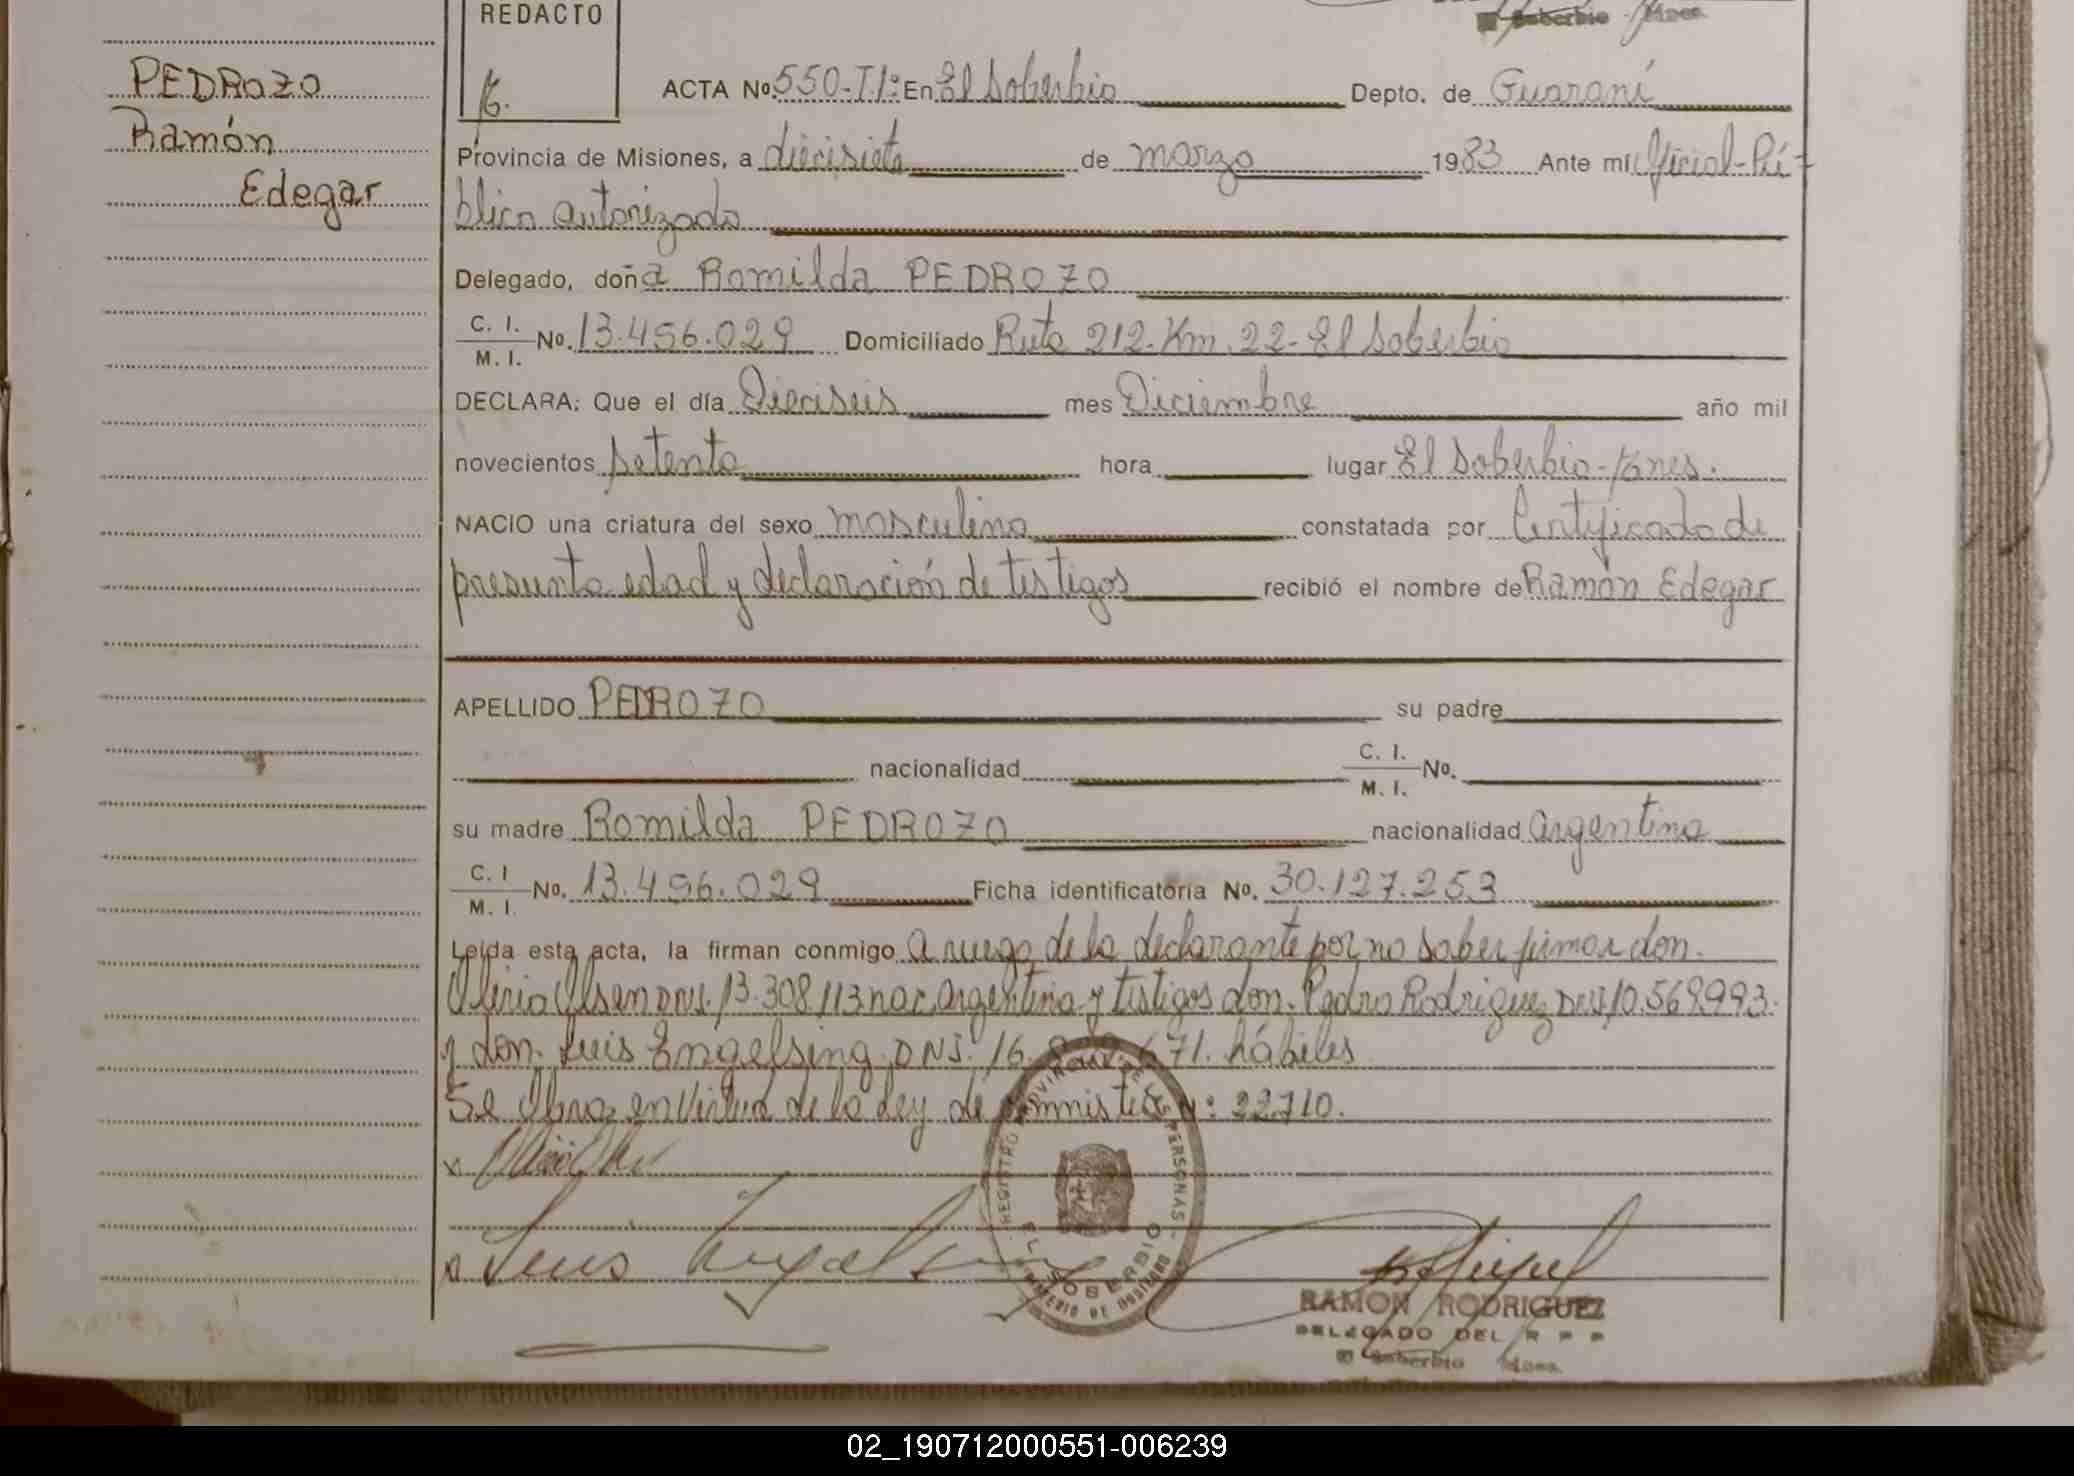 REDACTO
El Soberbio Mnes.
PEDROZO
Ramón
Edegar
ACTA Nº 550-T1: En El Soberbio Depto. de Guaraní
Provincia de Misiones, a diecisiete de marzo 1983 Ante mi Oficial-Pú-
blico autorizado
Delegado, doña Romilda PEDROZO
C. I. / M. I. Nº. 13.456.029 Domiciliado Ruta 212-Km. 22- El Soberbio
DECLARA: Que el día Dieciseis mes Diciembre año mil
novecientos setenta hora lugar El Soberbio-Mnes.
NACIO una criatura del sexo masculino constatada por Certificado de
presunta edad y declaración de testigos recibió el nombre de Ramón Edegar
APELLIDO PEDROZO su padre
nacionalidad C. I. / M. I. Nº.
su madre Romilda PEDROZO nacionalidad argentina
C. I / M. I. Nº. 13.456.029 Ficha identificatoria Nº. 30.127.253
Leída esta acta, la firman conmigo a ruego de la declarante por no saber firmar don.
Olsen DNI. 13.308.113 nac. argentina y testigos don. Pedro Rodriguez DNI 10.569.993.
y don. Luis Engelsing DNI. 16. 671. hábiles
Se labra en virtud de la Ley de amnistia Nº: 22710.
REGISTRO PROVINCIAL DE LAS PERSONAS
EL SOBERBIO
Luis Engelsing
RAMON RODRIGUEZ
DELEGADO DEL R P P
El Soberbio Mnes.
02_190712000551-006239